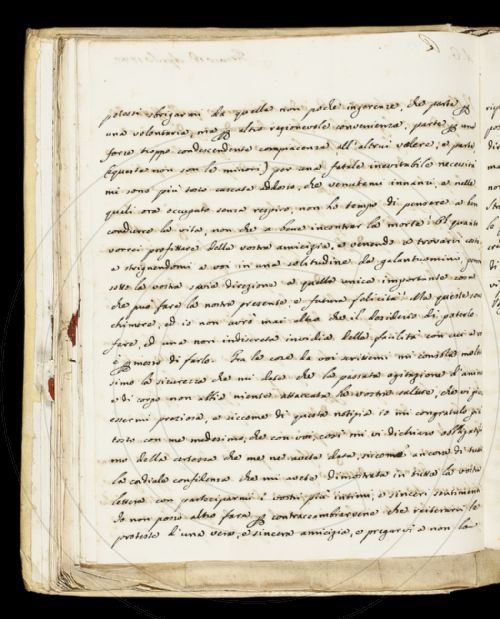 potessi sbrigarmi da quelle non poche ingerenze, che parte p
una volontaria, ma p altro ragionevole convenienza, parte p una
forse troppo condescendente compiacenza all'altrui volere, e parte
(e queste non son le minori) per una fatale inevitabile necessità
mi sono più tosto cascate addosso, che venutemi innanzi, e nelle
quali ora occupato senza respiro, non ho tempo di pensare a ben
condurre la vita, non che a bene incontrar la morte! Oh quanto
vorrei profittare della vostra amicizia, e venendo a trovarvi costì
e stringendomi a voi in una solitudine da galantuomini,
sotto la vostra savia direzione a quella unica importante cosa
che può fare la nostra presente, e futura felicità! Ma queste son
chimere, ed io non avrò mai altro che il desiderio di poterlo
fare, ed una non indiscreta invidia della facilità con cui a voi
è permesso di farlo. Tra le cose da voi scrittemi mi consola moltis
simo la sicurezza che mi date che la passata agitazione d'animo
e di corpo non abbia niente attaccata la vostra salute, che vi
essermi preziosa, e siccome di questa notizia io mi congratulo più
tosto con me medesimo, che con voi, così mi vi dichiaro obbligatissi
mo della certezza che me ne avete data, siccome ancora di tutta
la cordiale confidenza che mi avete dimostrata in tutta la vostra
lettera con parteciparmi i vostri più intimi, e sinceri sentimenti
Io non posso altro fare p contraccambiarvene che reiterarvi le
proteste d'una vera, e sincera amicizia, e pregarvi a non la